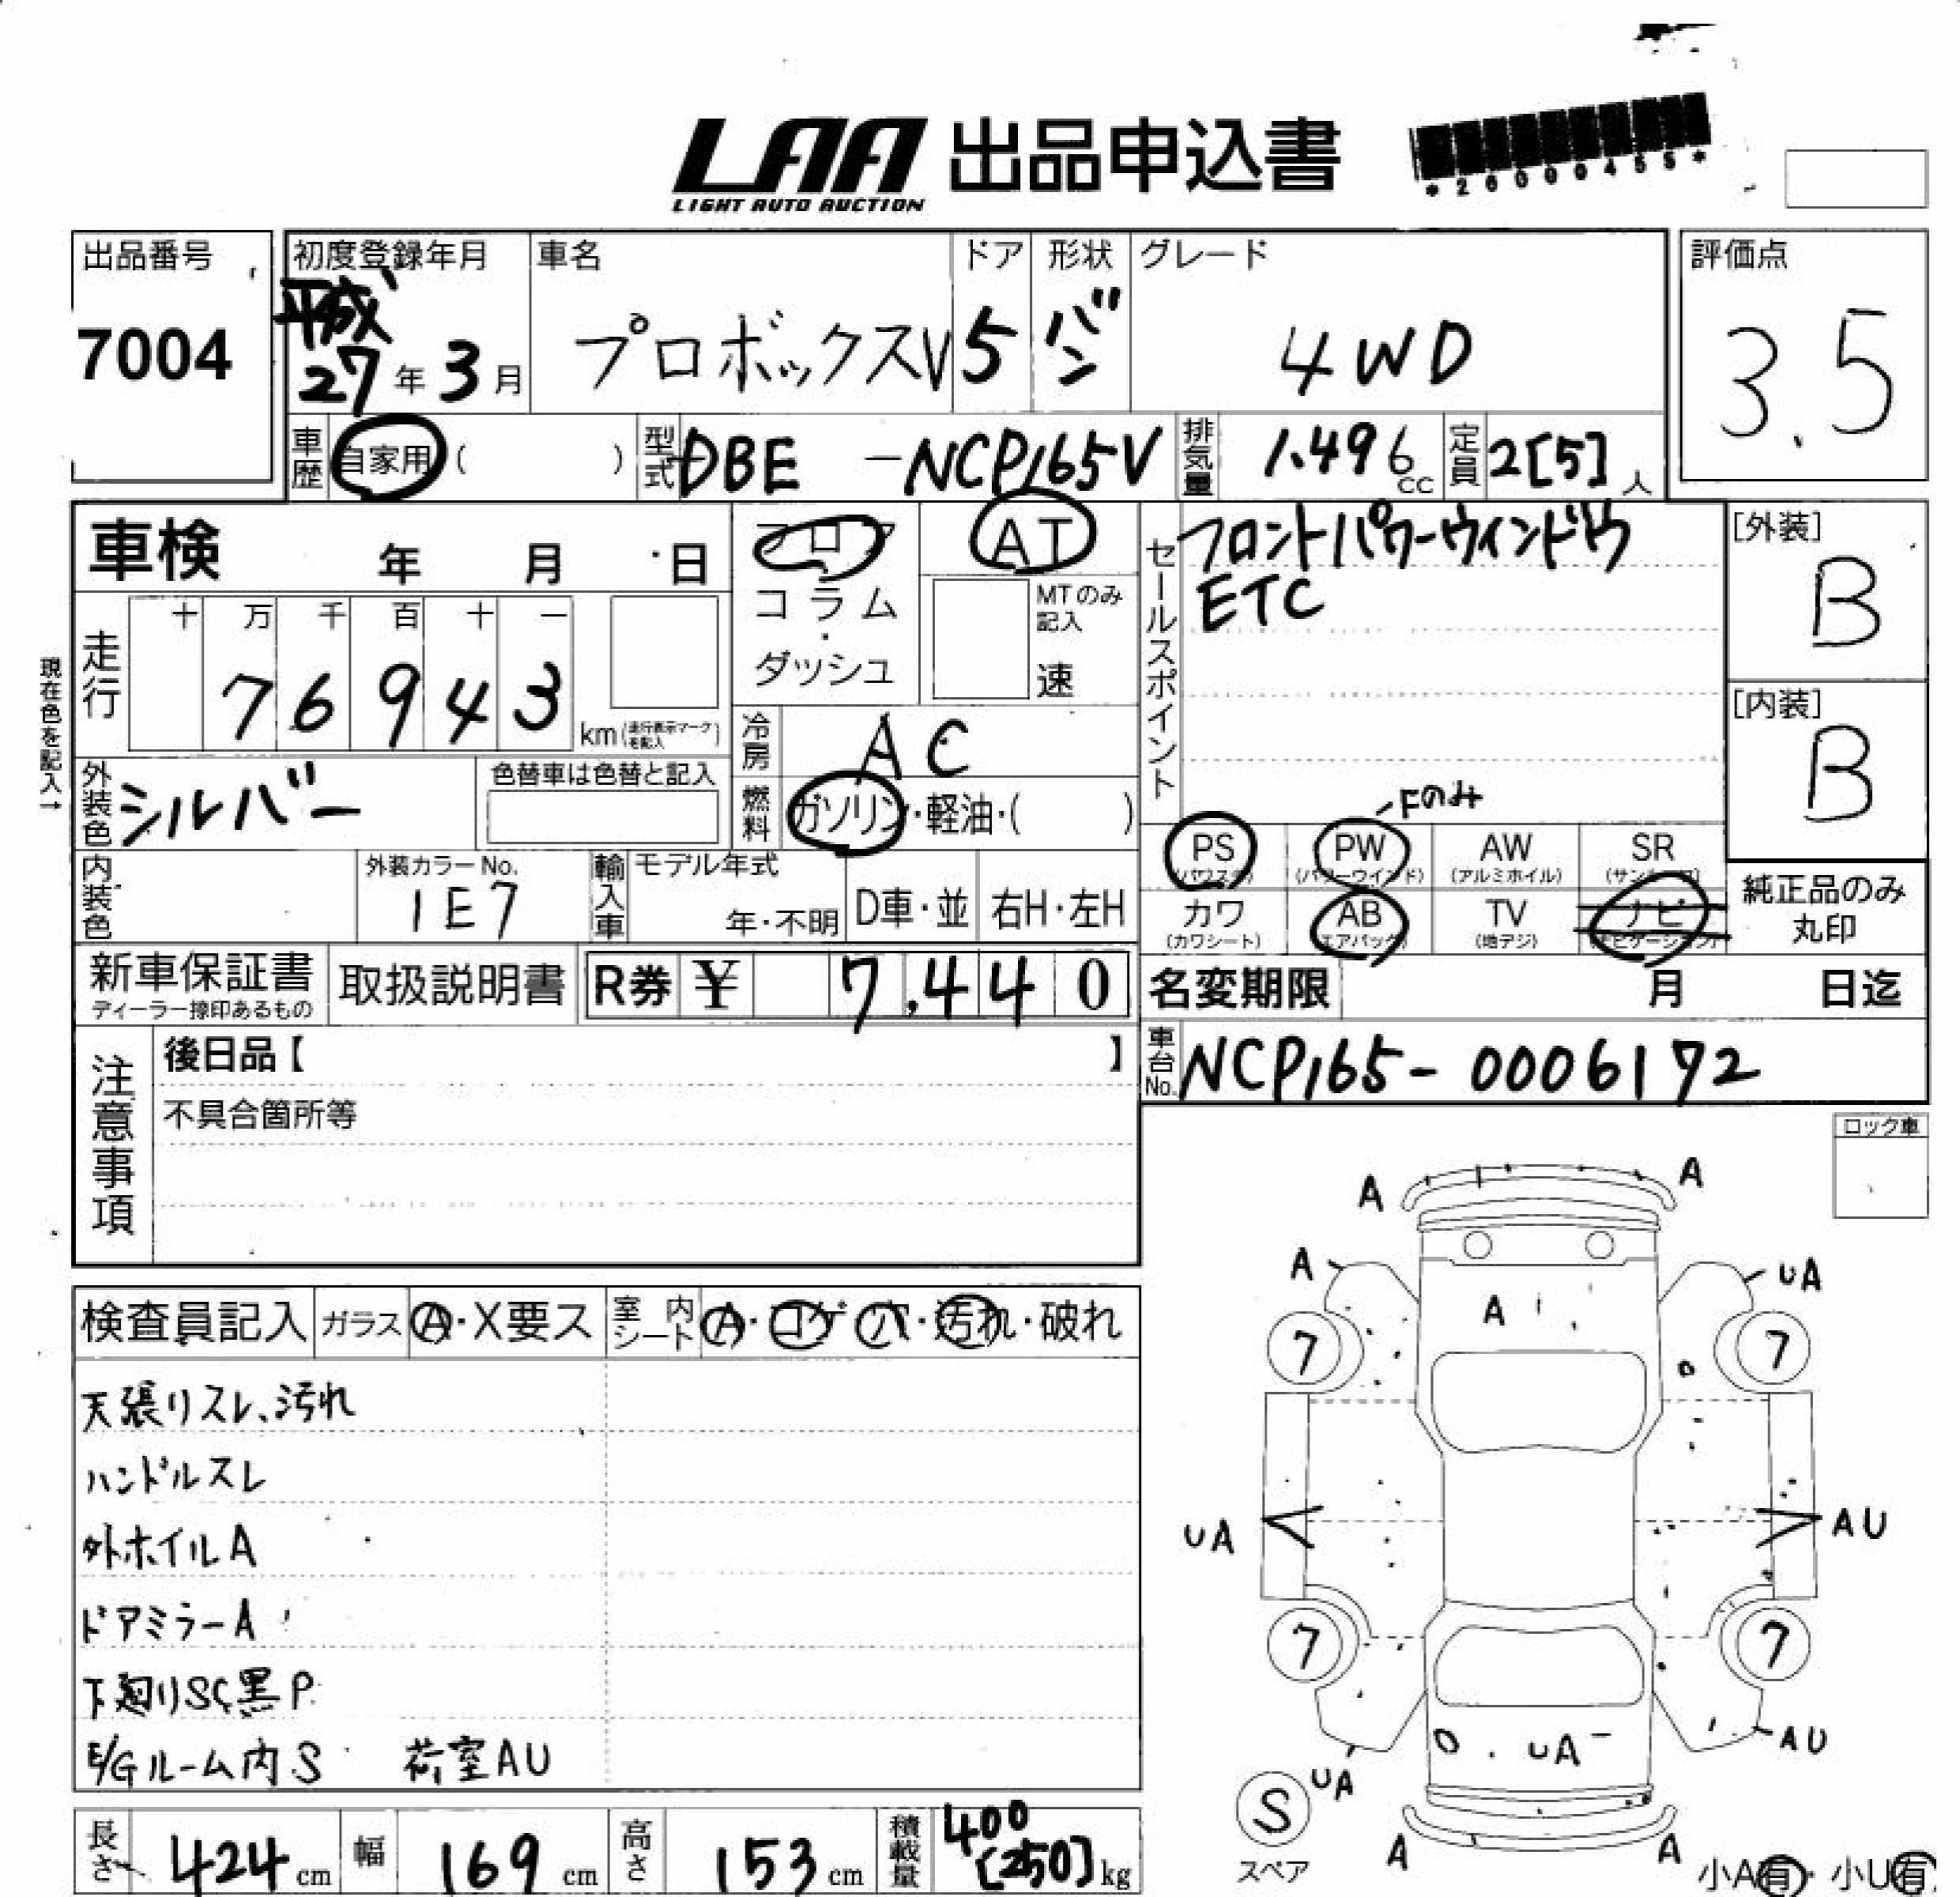 LAA 出品申込書
LIGHT AUTO AUCTION
*26000455*
出品番号
7004
初度登録年月
平成
27年3月
車名
プロボックスV
ドア
5
形状
バン
グレード
4WD
評価点
3.5
車歴 自家用( )
型式 DBE-NCP165V
排気量 1.496cc
定員 2[5]人
車検 年 月 日
フロア
コラム
・
ダッシュ
AT
MTのみ記入
速
セールスポイント
フロントパワーウィンドウ
ETC
[外装]
B
[内装]
B
現在色を記入→
走行
十 万 千 百 十 一
7 6 9 4 3
km(走行表示マークを記入)
冷房 AC
燃料 ガソリン・軽油・( )
外装色 シルバー
色替車は色替と記入
Fのみ
PS PW AW SR
(パワステ) (パワーウインド) (アルミホイル) (サンルーフ)
カワ AB TV ナビ
(カワシート) (エアバック) (地デジ) (ナビゲーション)
純正品のみ
丸印
内装色
外装カラーNo.
1E7
輸入車
モデル年式
年・不明
D車・並
右H・左H
新車保証書
ディーラー捺印あるもの
取扱説明書
R券 ¥ 7,440
名変期限 月 日迄
車台No. NCP165-0006172
注意事項
後日品【 】
不具合箇所等
ロック車
検査員記入
ガラス Ⓐ・X要ス
室内シート Ⓐ・コゲ・穴・汚れ・破れ
天張りスレ、汚れ
ハンドルスレ
外ホイルA
ドアミラーA
下廻りSC黒P
E/Gルーム内S 荷室AU
A A
A A UA
7 7
UA AU
7 7
UA AU
UA
S
スペア
A A
小A有・小U有
長さ 424cm
幅 169cm
高さ 153cm
積載量 400[250]kg